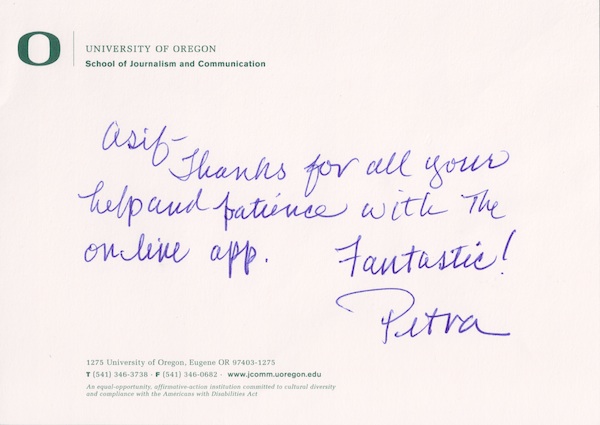 O
UNIVERSITY OF OREGON
School of Journalism and Communication
Asif-
Thanks for all your
help and patience with The
on-line app. Fantastic!
Petra
1275 University of Oregon, Eugene OR 97403-1275
T (541) 346-3738 · F (541) 346-0682 · www.jcomm.uoregon.edu
An equal-opportunity, affirmative-action institution committed to cultural diversity
and compliance with the Americans with Disabilities Act